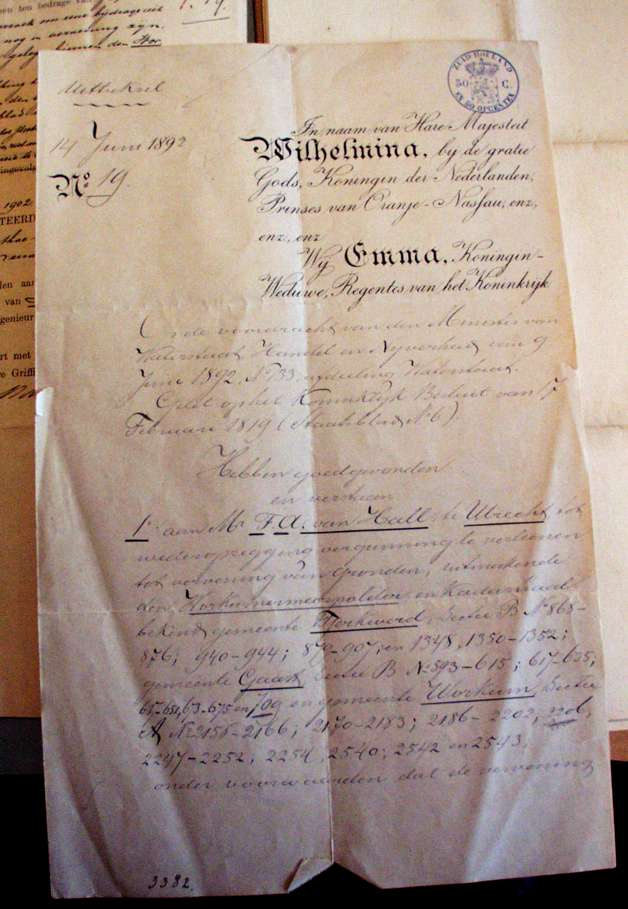 Uittreksel
14 Juni 1892
No. 19.
ZUID HOLLAND
50 C.
EN 50 OPCENTEN
In naam van Hare Majesteit
Wilhelmina, bij de gratie
Gods, Koningin der Nederlanden,
Prinses van Oranje-Nassau, enz,
enz, enz
Wij Emma, Koningin-
Weduwe, Regentes van het Koninkrijk
Op de voordracht van den Minister van
Waterstaat Handel en Nijverheid van 9
Juni 1892, No 133, afdeeling Waterstaat.
Gelet op het Koninklijk Besluit van 17
Februari 1819 (Staatsblad No 6).
Hebben goedgevonden
en verstaan
1o aan Mr F. A. van Hall te Utrecht tot
wederopzegging vergunning te verleenen
tot vervening van gronden, uitmakende
den Workumermeerpolder en kadastraal
bekend gemeente Workum, Sectie B No 868-
876; 940-944; 907, en 1348, 1350-1352;
gemeente Gaast, Sectie B No 593-615; 617-635;
en 709 en gemeente Workum, Sectie
A No 2158-2166; 2170-2183; 2186-2202,
2247-2252; 2254, 2540; 2542 en 2543,
onder voorwaarden dat de vervening
3382.
1902
TEERD
van
genieur
rt met
Griffi